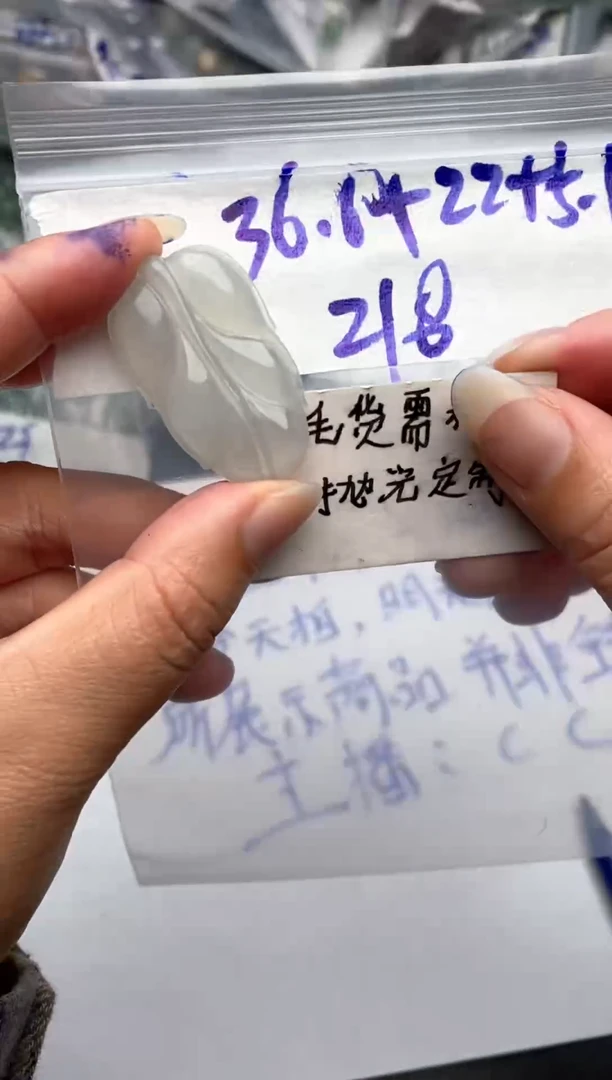 36.14+22+5.1
218
毛货需
抛光定制
天拍，明
所展示商品并非全
主播：CC